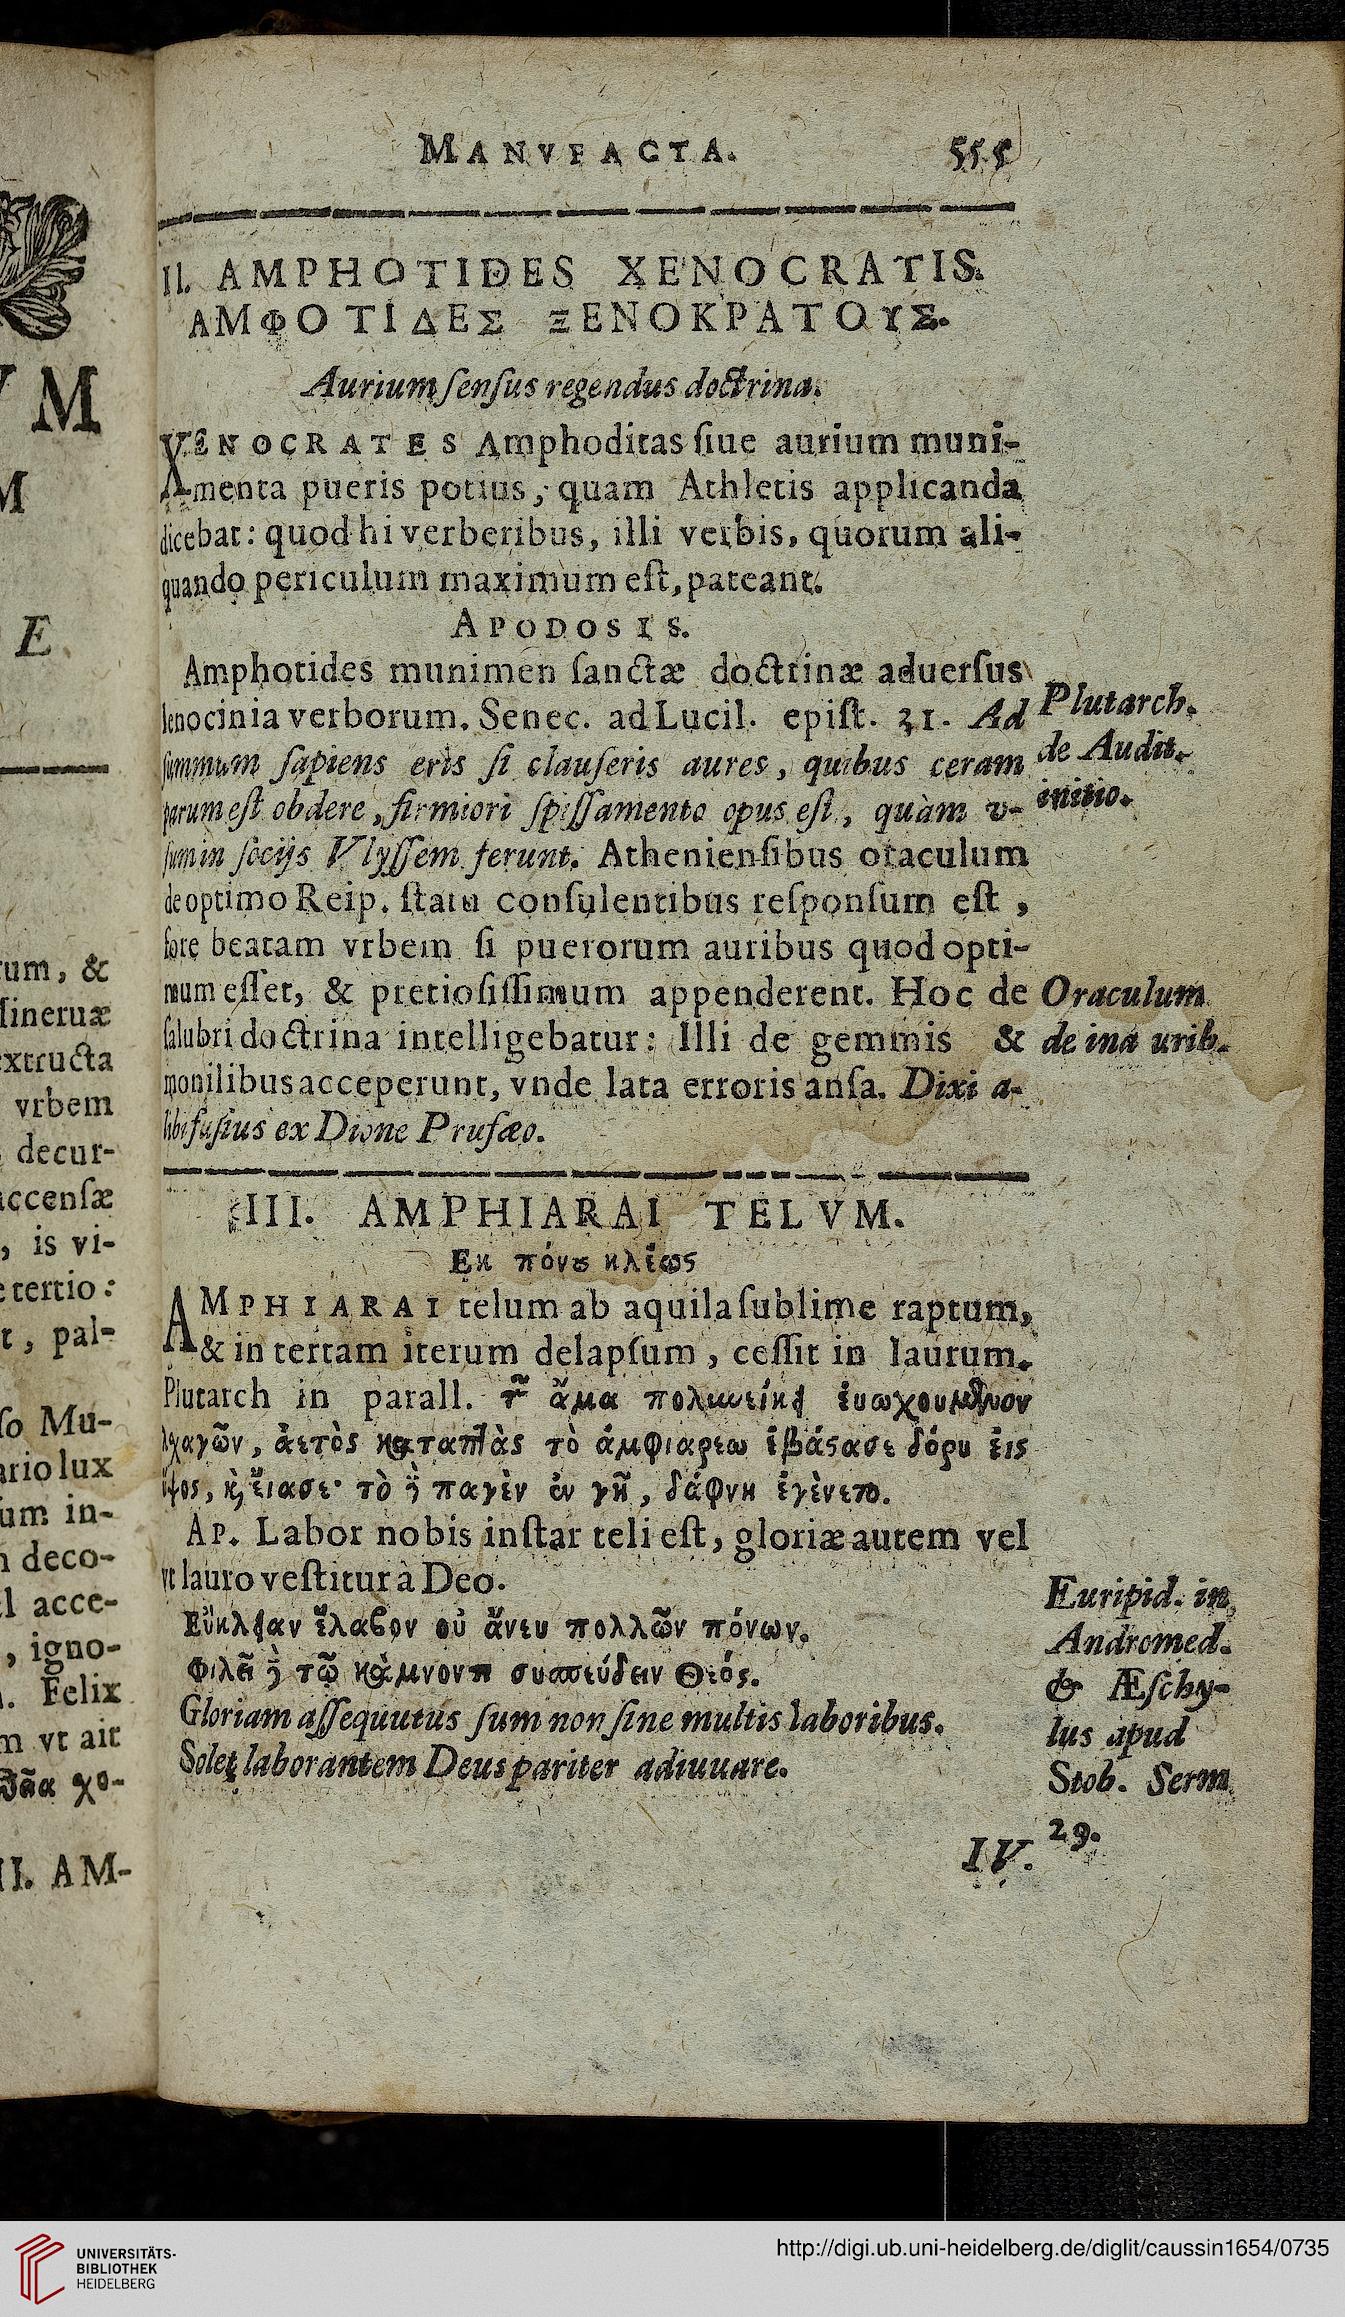 MANVFACTA. 555
II. AMPHOTIDES XENOCRATIS.
ΑΜΦΟΤΙΔΕΣ ΞΕΝΟΚΡΑΤΟΥΣ.
Aurium ſenſus regendus doctrina.
XENOCRATES Amphoditas ſiue aurium muni-
menta pueris potius, quam Athletis applicanda
dicebat: quod hi verberibus, illi verbis, quorum ali-
quando periculum maximum eſt, pateant.
APODOSIS.
Amphotides munimen ſanctæ doctrinæ aduerſus
lenocinia verborum. Senec. ad Lucil. epiſt. 31. Ad
ſummum ſapiens eris ſi clauſeris aures, quibus ceram
parum eſt obdere, firmiori ſpiſſamento opus eſt, quàm v-
ſum in ſocijs Vlyſſem ferunt. Athenienſibus oraculum
de optimo Reip. ſtatu conſulentibus reſponſum eſt,
fore beatam vrbem ſi puerorum auribus quod opti-
mum eſſet, & pretioſiſſimum appenderent. Hoc de
ſalubri doctrina intelligebatur: Illi de gemmis &
monilibus acceperunt, vnde lata erroris anſa. Dixi a-
libi fuſius ex Dione Pruſæo.
Plutarch.
de Audit.
initio.
Oraculum
de ina urib.
III. AMPHIARAI TELVM.
Εκ πόνȣ κλέως
AMPHIARAI telum ab aquila ſublime raptum,
& in terram iterum delapſum, ceſſit in laurum.
Plutarch in parall. ἅμα
ἀετὸς καταπτὰς τὸ ἀμφιαρεω ἐβάςασε δόρυ εἰς
ὕψος, κ εἴασε· τὸ παγὲν ἐν γῆ, δάφνη ἐγένετο.
AP. Labor nobis inſtar teli eſt, gloriæ autem vel
vt lauro veſtitur à Deo.
Εὔκλειαν ἔλαβον οὐ ἄνευ πολλῶν πόνων.
Φιλεῖ τῷ κάμνοντι συσπεύδειν Θεός.
Gloriam aſſequutus ſum non ſine multis laboribus.
Solet laborantem Deus pariter adiuuare.
Euripid. in
Andromed.
& Æſchy-
lus apud
Stob. Serm
29.
IV.
VM
M
E
rum, &
Mineruæ
extructa
vrbem
decur-
accenſæ
, is vi-
e tertio:
t, pal-
ſo Mu-
ario lux
um in-
n deco-
l acce-
, igno-
. Felix
m vt ait
χο-
II. AM-
UNIVERSITÄTS-
BIBLIOTHEK
HEIDELBERG
http://digi.ub.uni-heidelberg.de/diglit/caussin1654/0735